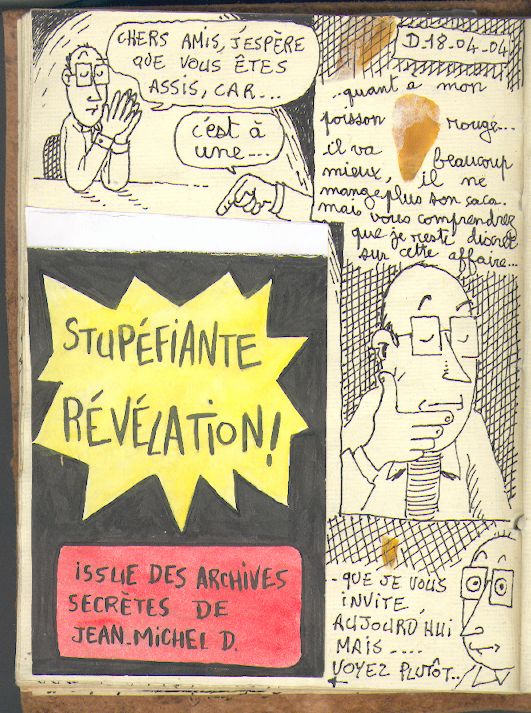 CHERS AMIS, J'ESPÈRE
QUE VOUS ÊTES
ASSIS, CAR...
c'est à
une...
D.18.04.04
..quant à mon
poisson rouge...
il va beaucoup
mieux, il ne
mange plus son caca.
mais vous comprendrez
que je reste discret
sur cette affaire...
STUPÉFIANTE
RÉVÉLATION!
ISSUE DES ARCHIVES
SECRÈTES DE
JEAN-MICHEL D.
-QUE JE VOUS
INVITE
AUJOURD'HUI
MAIS....
VOYEZ PLUTÔT..